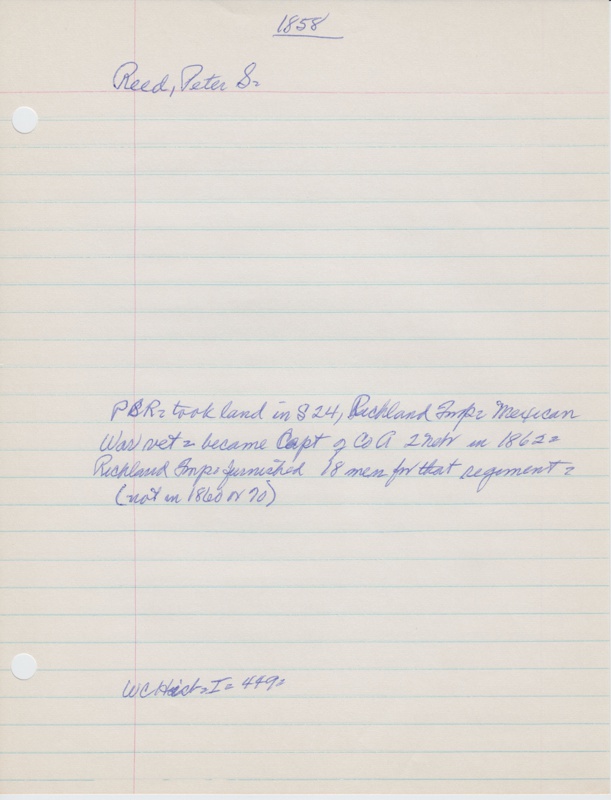 1858
Reed, Peter S=
PSR= took land in S 24, Richland Twp= Mexican
War vet = became Capt of Co A 2 Nebr in 1862=
Richland Twp= furnished 18 men for that regiment =
(not in 1860 or 70)
WC Hist= I = 449=